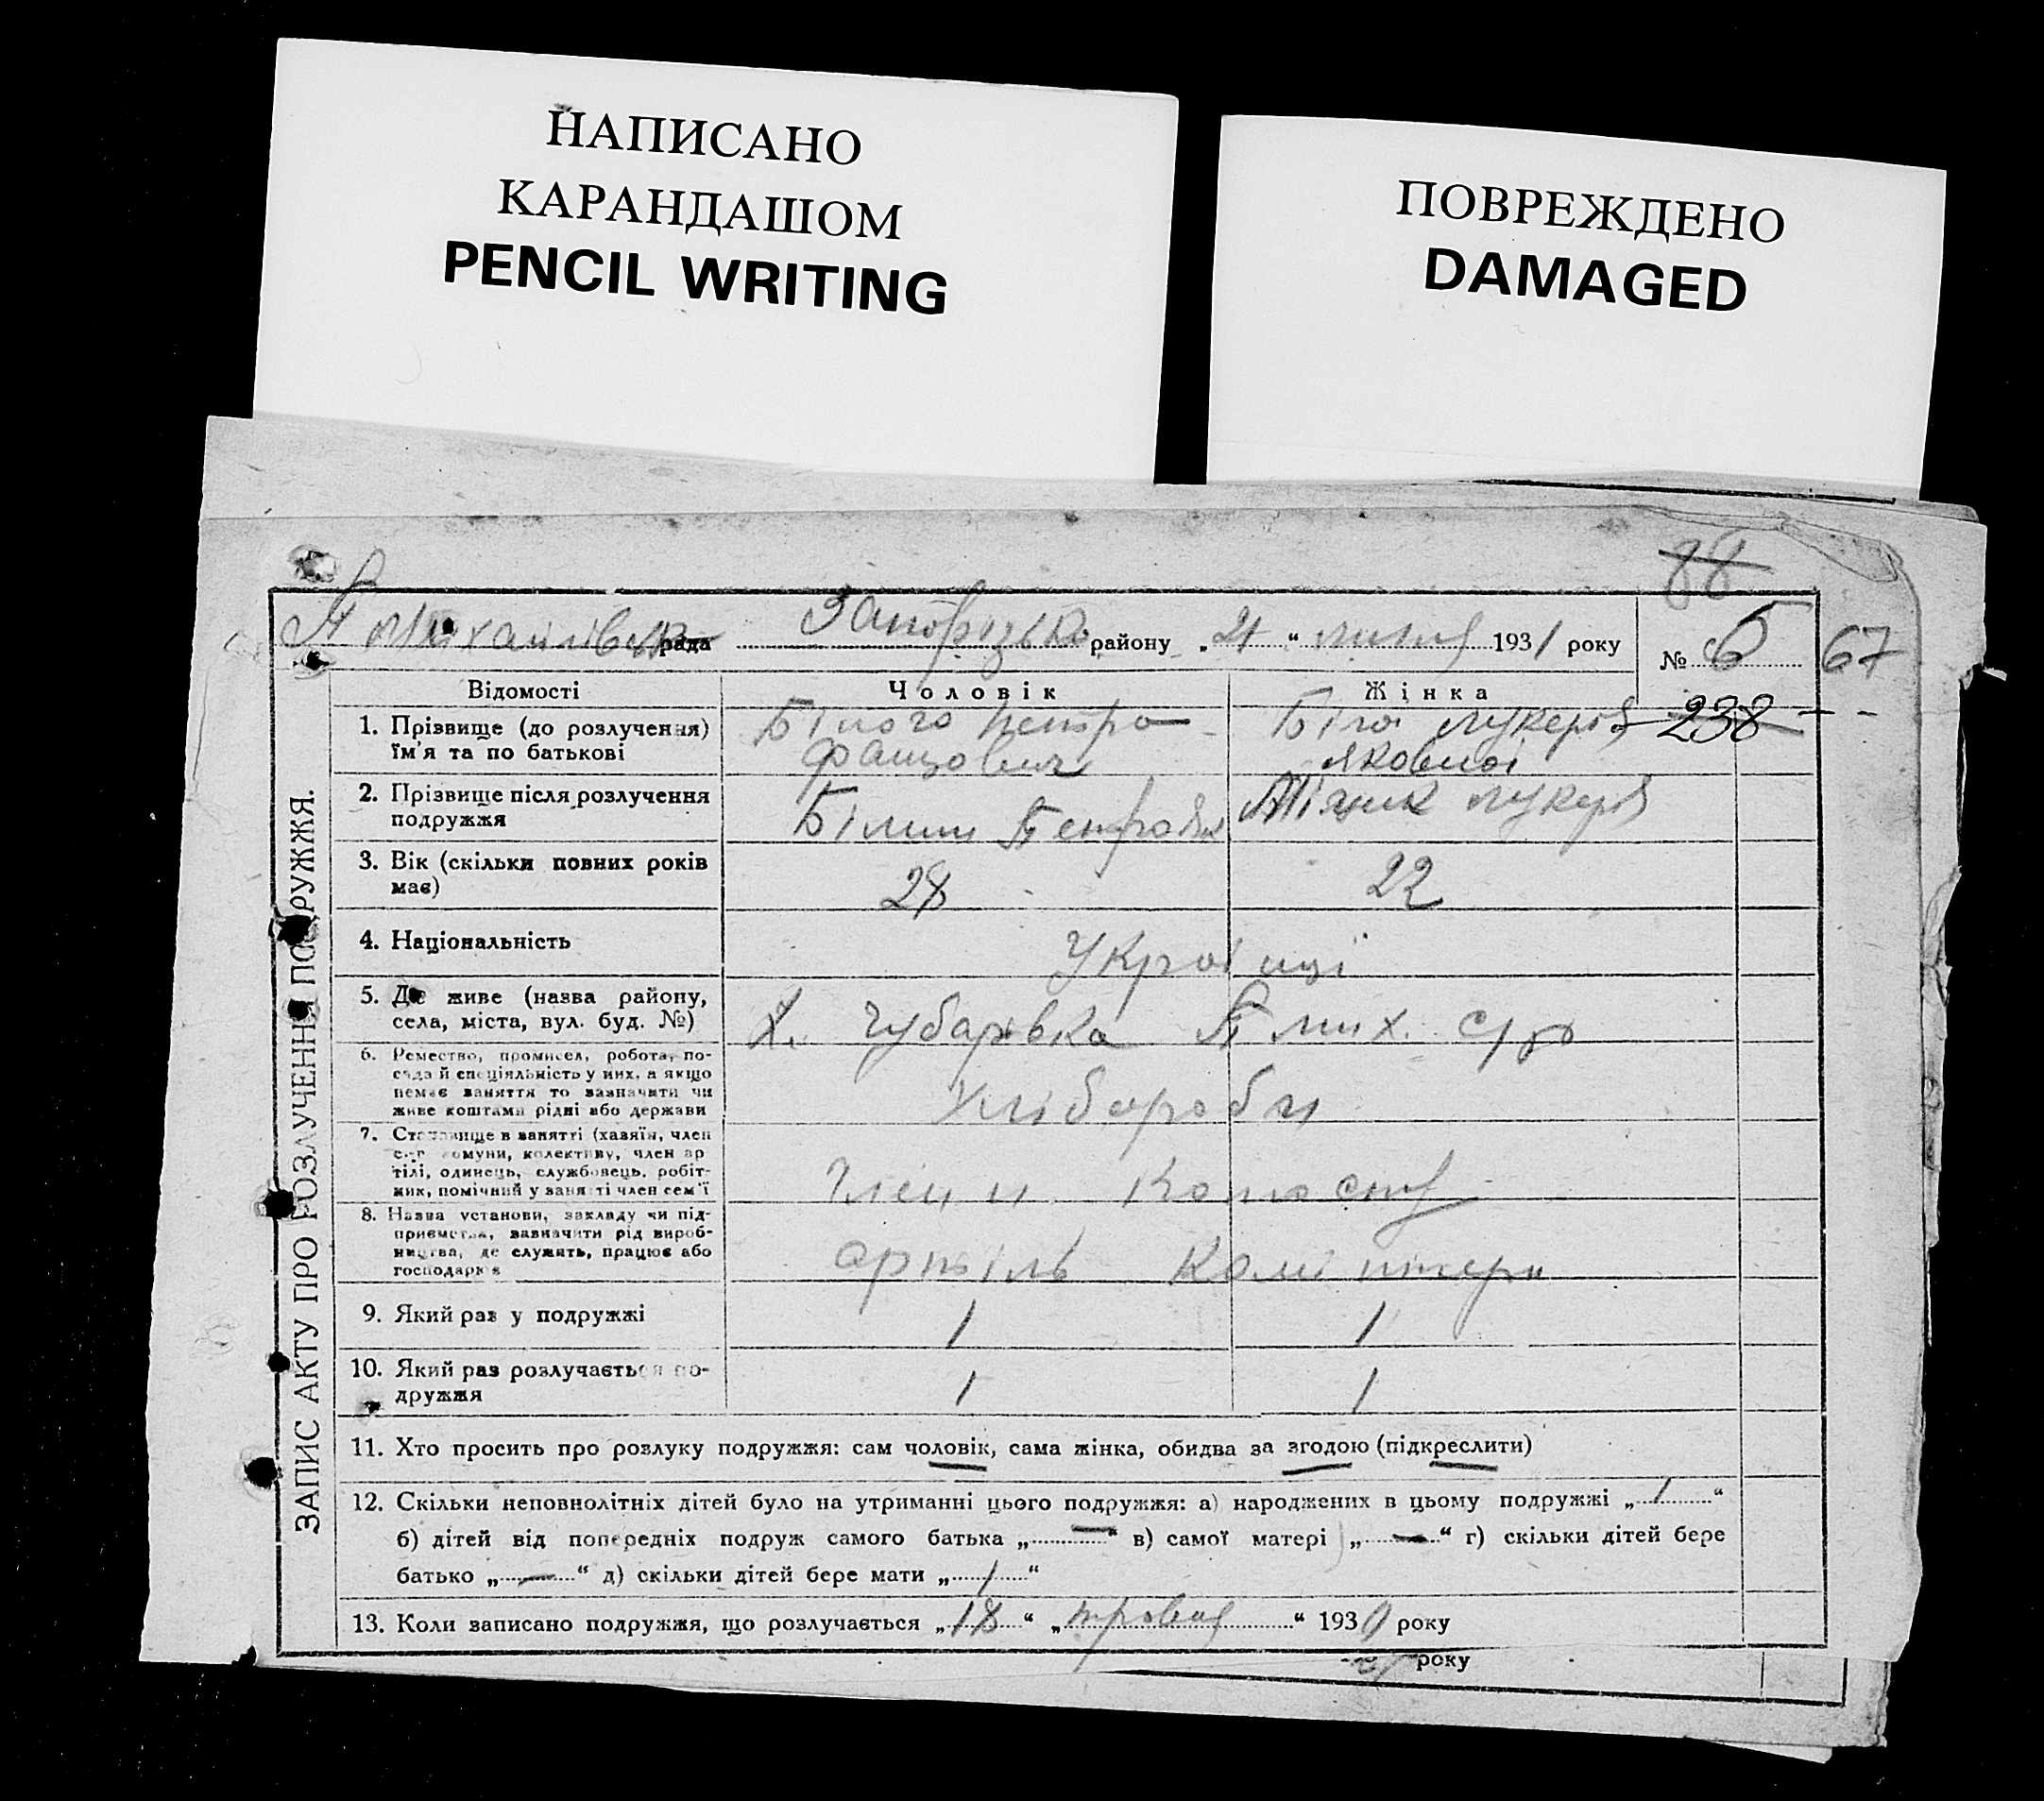 НАПИСАНО
КАРАНДАШОМ
PENCIL WRITING
ПОВРЕЖДЕНО
DAMAGED
88
рада Запорізько району „21“ 1931 року № 6 67
ЗАПИС АКТУ ПРО РОЗЛУЧЕННЯ ПОДРУЖЖЯ.
Відомості Чоловік Жінка
1. Прізвище (до розлучення) Білого Петро Біло Лукерія 238
їм'я та по батькові Яковної
2. Прізвище після розлучення Білий Лукерія
подружжя
3. Вік (скільки повних років 28 22
має)
4. Національність Україн ці
5. Де живе (назва району, Х. Чубарівка П Мих. с/р
села, міста, вул. буд. №)
6. Ремество, промисел, робота, по-
сада й спеціяльність у них, а якщо
немає заняття то зазначити чи
живе коштами рідні або держави Хлібороби
7. Становище в занятті (хазяїн, член
комуни, колективу, член ар
тілі, одинець, службовець, робіт-
ник, помічний у занятті член сем'ї Члени
8. Назва установи, закладу чи під-
приємства, зазначити рід вироб-
ництва, де служить, працює або
господарює артіль Комінтерн
9. Який раз у подружжі 1 1
10. Який раз розлучається по- 1 1
дружжя
11. Хто просить про розлуку подружжя: сам чоловік, сама жінка, обидва за згодою (підкреслити)
12. Скільки неповнолітніх дітей було на утриманні цього подружжя: а) народжених в цьому подружжі „1“
б) дітей від попередніх подруж самого батька „—“ в) самої матері „—“ г) скільки дітей бере
батько „—“ д) скільки дітей бере мати „1“
13. Коли записано подружжя, що розлучається „18“ „травня“ 193 року
року